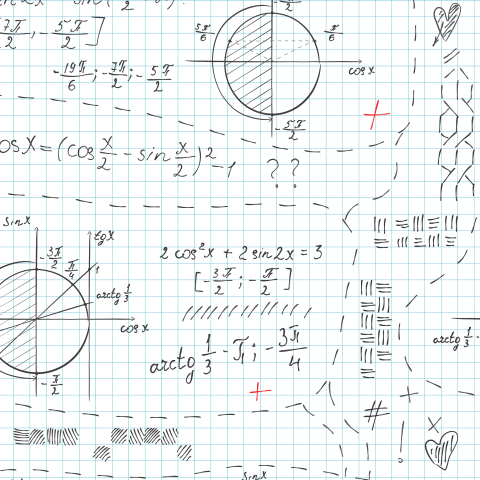 [-7π/2; -5π/2]
5π/6
π/6
-19π/6; -7π/2; -5π/2
cosx
-5π/2
cosx = (cos x/2 - sin x/2)² - 1 ??
sinx
tgx
-3π/2
π/4
1
arctg 1/3
cosx
-π/2
2cos²x + 2sin2x = 3
[-3π/2; -π/2]
arctg 1/3 - π; -3π/4
arctg 1/3 -
sinx